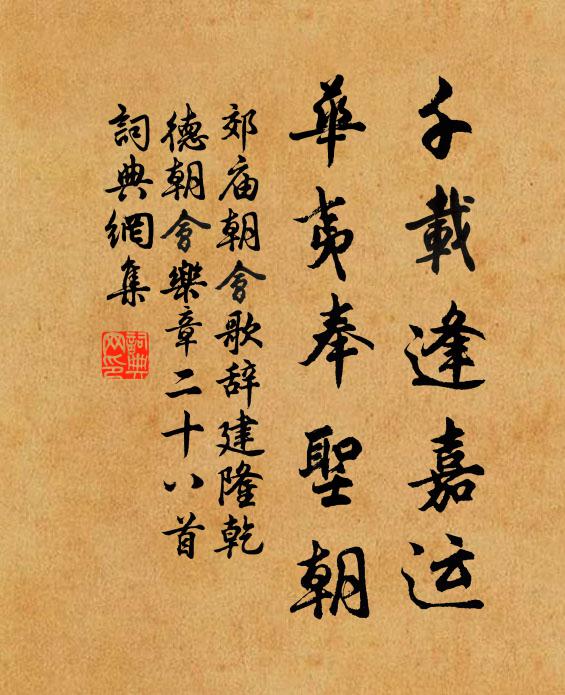 千載逢嘉运
華夷奉聖朝
郊庙朝會歌辞建隆乾
德朝會樂章二十八首
詞典網集
詞典
网印